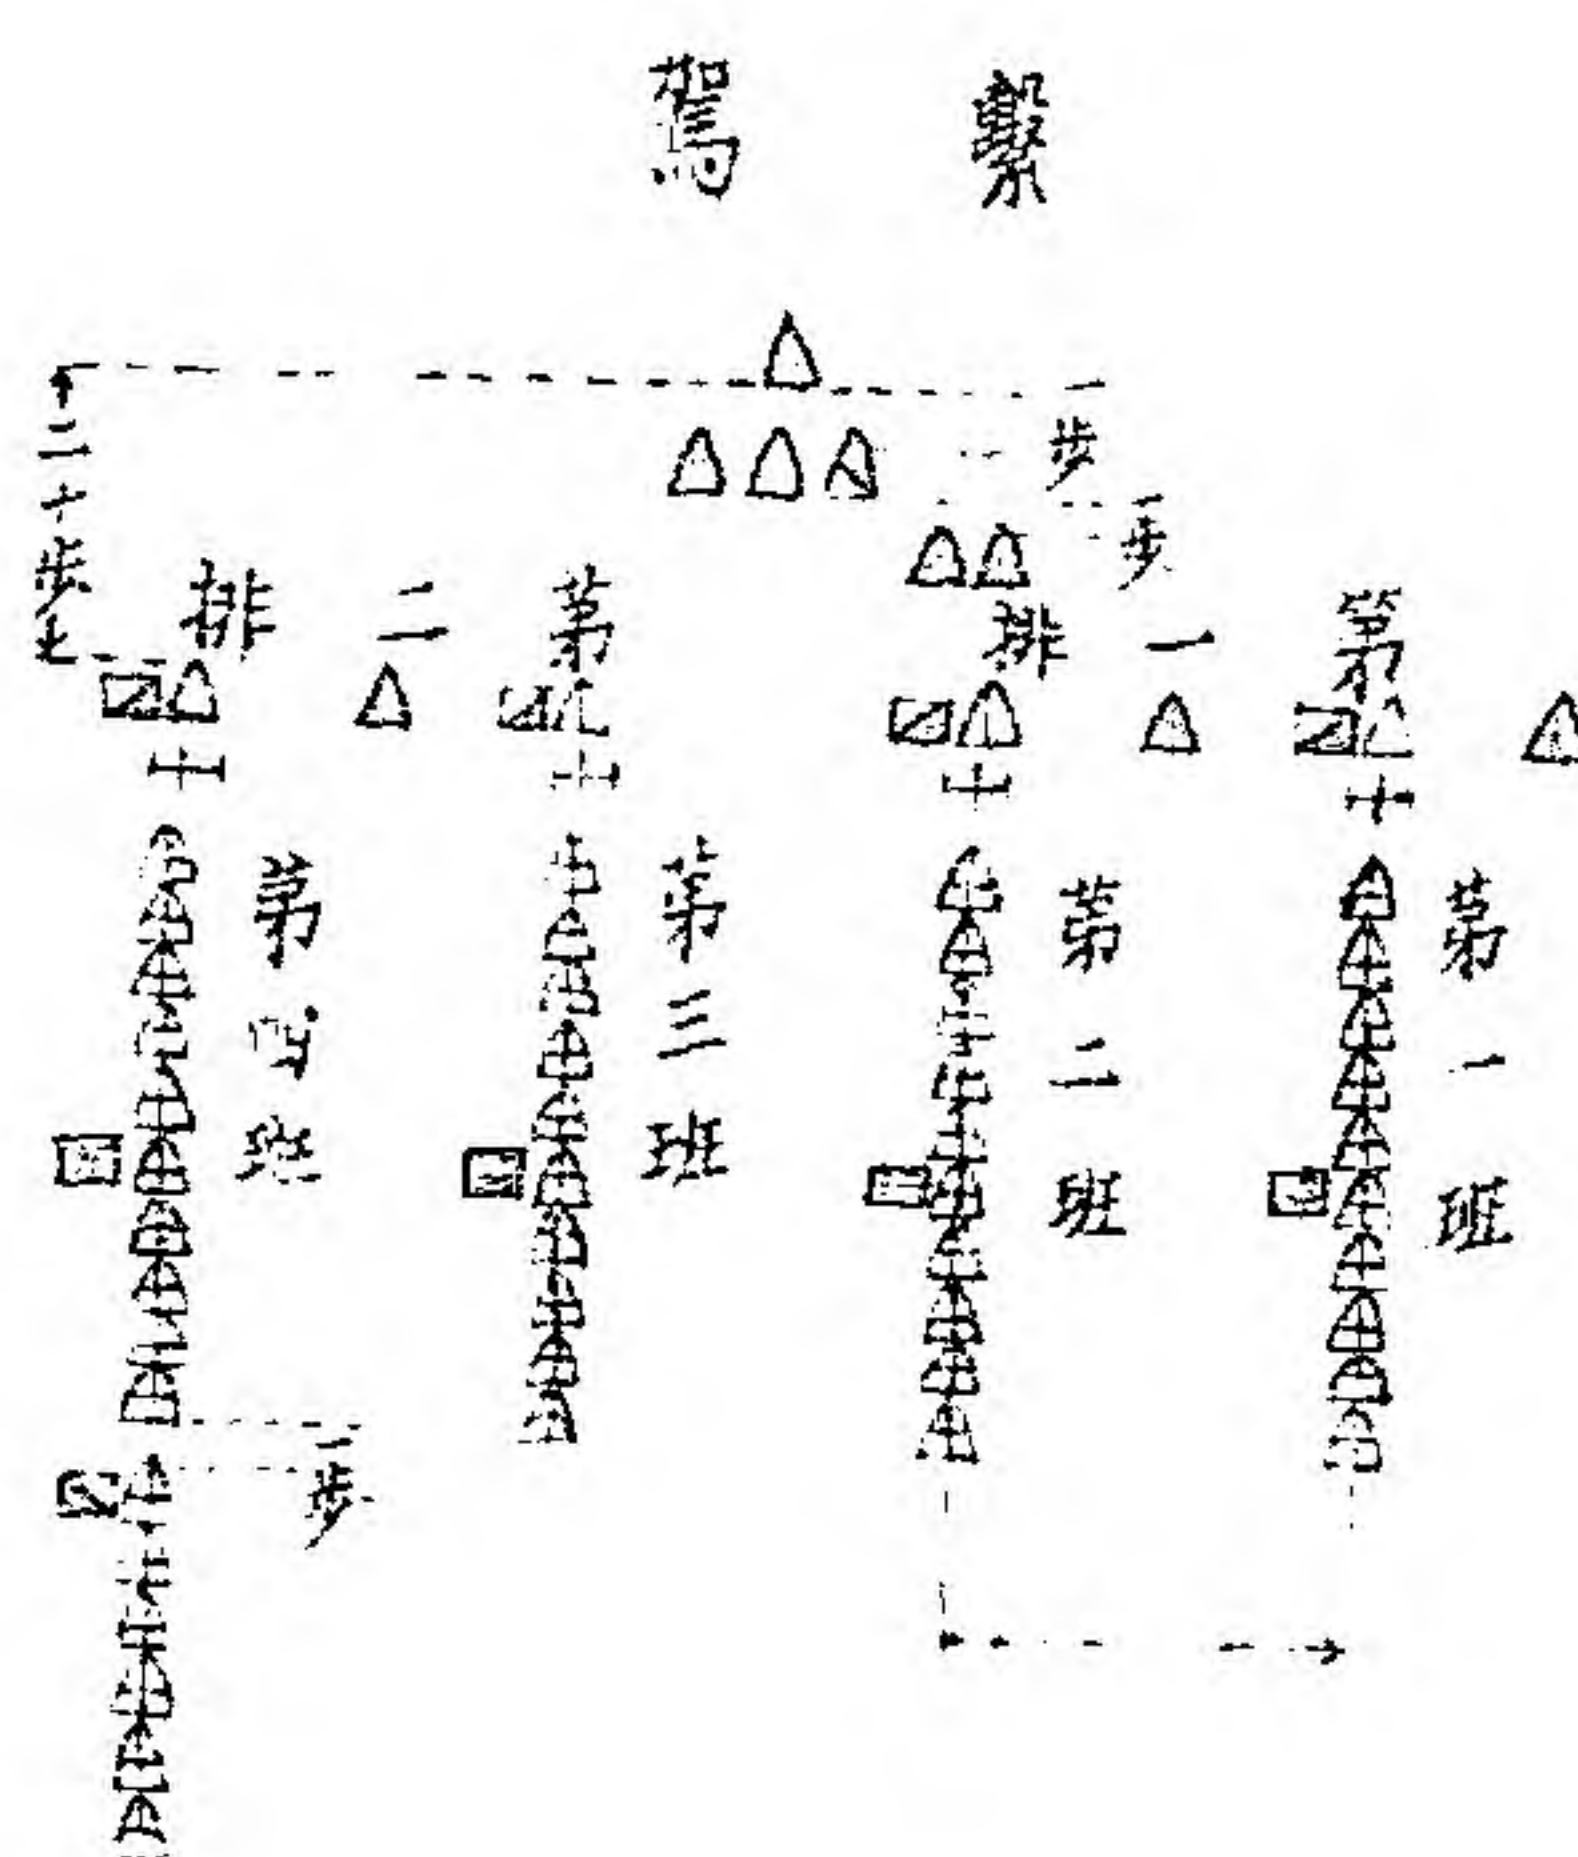 繫駕
一步
一步
二十步
第一排
第二排
第一班
第二班
第三班
第四班
一步